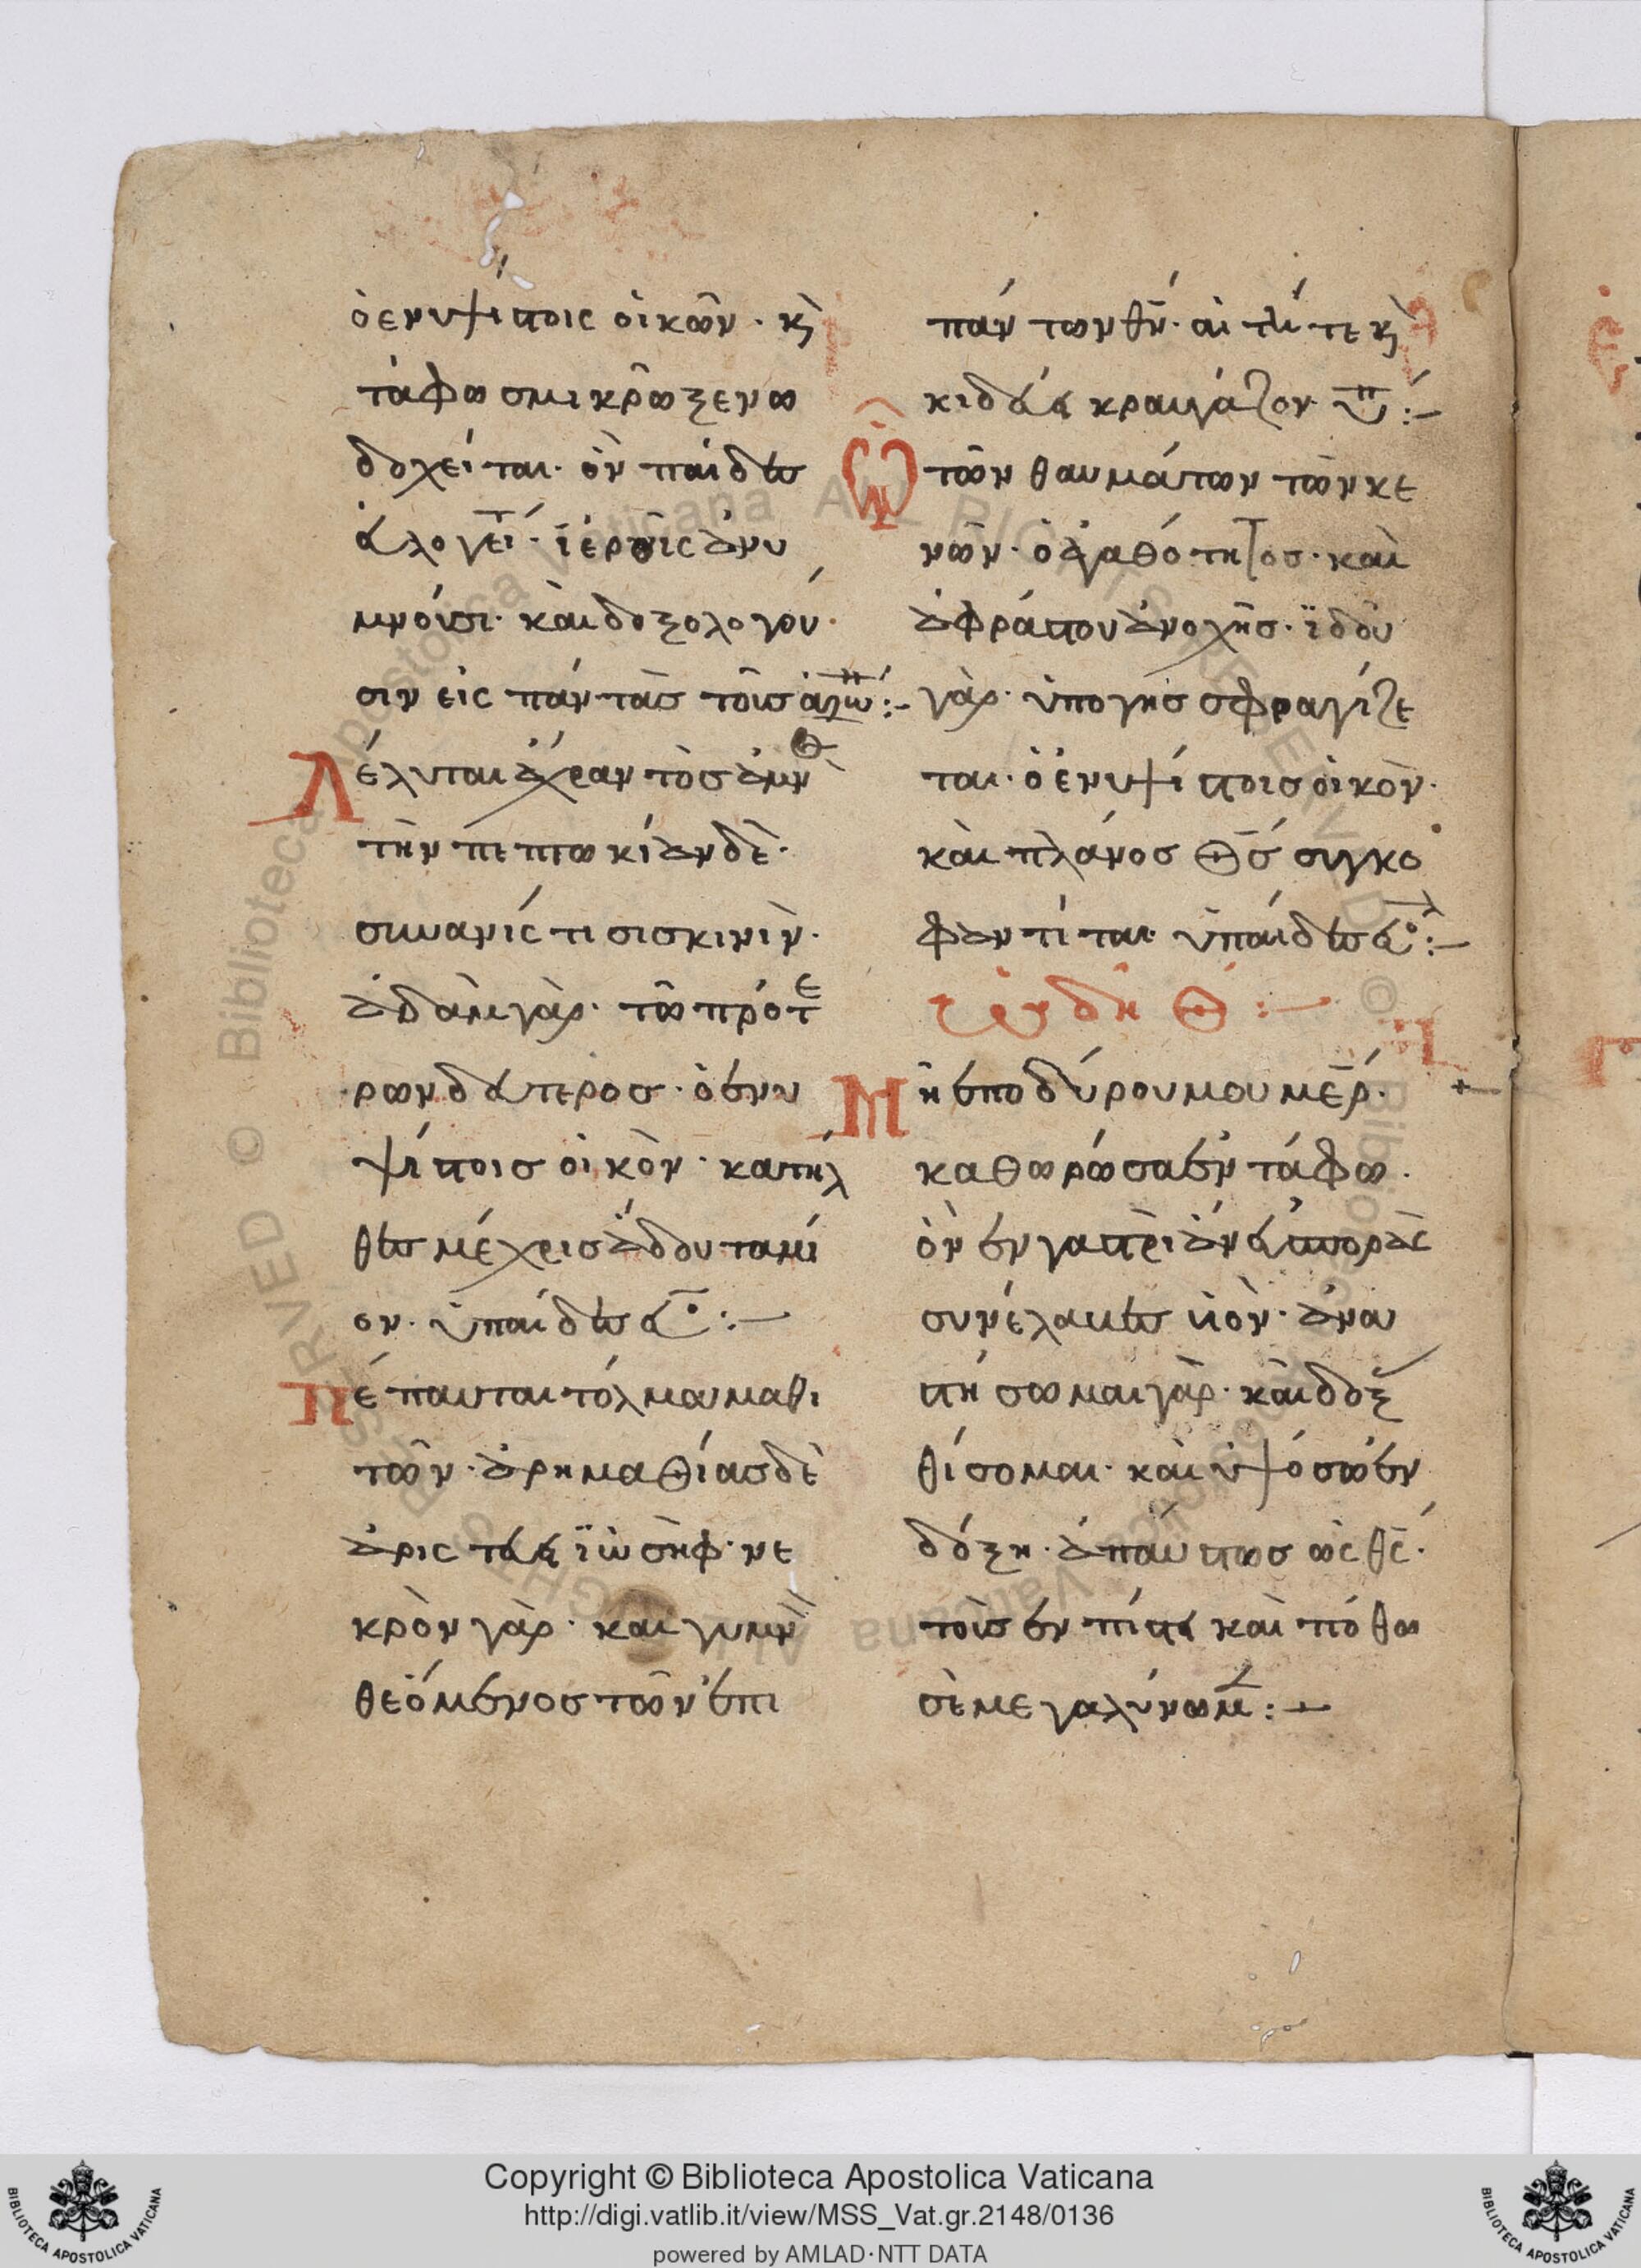 ὁ ενυψίστοις οἰκῶν· κὶ
τάφω σμικρῶ ξενω
δοχείται· ὃν παίδες
ἐυλογεῖτ· ϊερεῖς ἀνυ
μνοῦσι· καὶ δοξολογού·
σιν εἰς πάντας τοῦς αἰῶν:-
Λέλυται ἄχραντος ὁ ναὸς
τὴν πεπτωκίαν δὲ·
συνανίστισι σκινὶν·
ἀδὰμ γὰρ· τῶ πρότε
ρων δεύτερος· ὁ ἐνυ
ψίστοις οἰκὸν· κατηλ
θεν μέχρισ ἄδου ταμί
ον· ὑπαίδες ευ:-
Πέπαυται τόλμα μαθι
τῶν· ἀρημαθίασ δὲ
ἀριστεύει ϊωσὴφ· νε
κρὸν γὰρ· και γυμνὸν
θεόμενος τῶν ἐπι
πάντων θν· αι τεί τε κὶ
κιδεύει κραυγάζον· π:-
Ὢ τῶν θαυμάτων τῶν κε
νῶν· ὁ ἀγαθότητος· καὶ
ἀφράστου ἀνοχῆσ· ϊδοὺ
γὰρ· ὑπογῆσ σφραγίζε
ται· ὁ ἐνυψίστοισ οἰκὸν·
καὶ πλάνοσ Θς συγκο
φαντίται· ὑπαίδες ευ:-
ὠδῆ Θ:-
Μὴ ἐποδύρου μου μερ·
καθωρώσα ἐν τάφω·
ὃν ἐν γαστρὶ ἄνευ σπορᾶς
συνέλαβες υἱὸν· ἀνα
στήσωμαι γὰρ· καὶ δοξα
θίσομαι· καὶ ὑψόσω ἐν
δόξη· ἀπαύστωσ ὡς θς·
τοὺσ ἐν πίστει καὶ πόθω
σὲ μεγαλύνωμ:-
Copyright © Biblioteca Apostolica Vaticana
http://digi.vatlib.it/view/MSS_Vat.gr.2148/0136
powered by AMLAD·NTT DATA
BIBLIOTECA APOSTOLICA VATICANA
BIBLIOTECA APOSTOLICA VATICANA